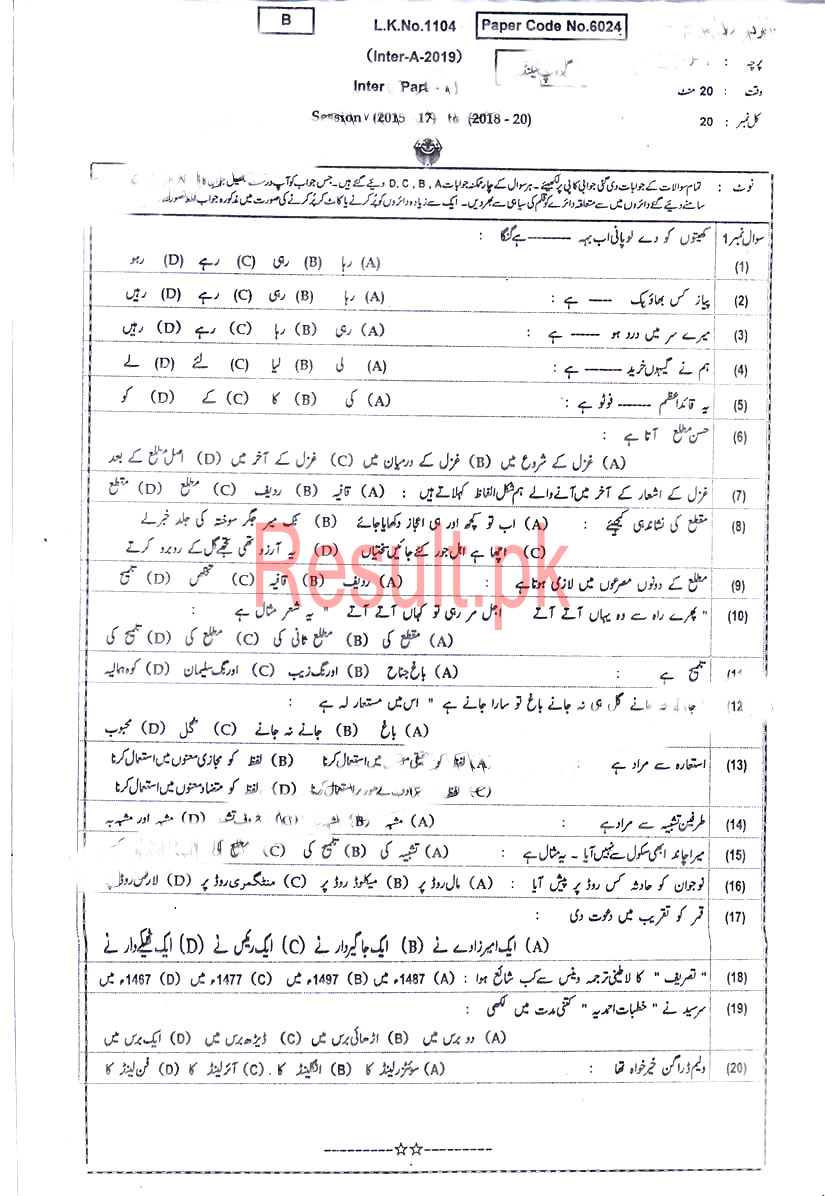 B
L.K.No.1104
Paper Code No.6024
(Inter-A-2019)
پرچہ :
گروپ سیکنڈ
Inter Part
وقت : 20 منٹ
Session (2015 17) to (2018 - 20)
کل نمبر : 20
نوٹ : تمام سوالات کے جوابات دی گئی جوابی کاپی پر لکھیئے ۔ ہر سوال کے چار ممکنہ جوابات D, C, B, A دیئے گئے ہیں۔ جس جواب کو آپ درست
سامنے دیئے گئے دائروں میں سے متعلقہ دائرے کو قلم کی سیاہی سے بھر دیں۔ ایک سے زیادہ دائروں کو پُر کرنے یا کاٹ کر پُر کرنے کی صورت میں مذکورہ جواب غلط تصور
سوال نمبر 1 کھیتوں کو دے لو پانی اب بہہ ------- ہے گنگا :
(1) (A) رہا (B) رہی (C) رہے (D) رہو
(2) پیاز کس بھاؤ بِک ---- ہے : (A) رہا (B) رہی (C) رہے (D) رہیں
(3) میرے سر میں درد ہو ------ ہے : (A) رہی (B) رہا (C) رہے (D) رہیں
(4) ہم نے گیہوں خرید ------- ہے : (A) لی (B) لیا (C) لئے (D) لے
(5) یہ قائداعظم ------ فوٹو ہے : (A) کی (B) کا (C) کے (D) کو
(6) حسن مطلع آتا ہے :
(A) غزل کے شروع میں (B) غزل کے درمیان میں (C) غزل کے آخر میں (D) اصل مطلع کے بعد
(7) غزل کے اشعار کے آخر میں آنے والے ہم شکل الفاظ کہلاتے ہیں : (A) قافیہ (B) ردیف (C) مطلع (D) مقطع
(8) مقطع کی نشاندہی کیجیئے : (A) اب تو کچھ اور ہی اعجاز دکھایا جائے (B) ٹک میر جگر سوختہ کی جلد خبر لے
(C) اچھا ہے اہل جور کئے جائیں سختیاں (D) یہ آرزو تھی تجھے گل کے روبرو کرتے
(9) مطلع کے دونوں مصرعوں میں لازمی ہوتا ہے : (A) ردیف (B) قافیہ (C) تخلص (D) تلمیح
(10) " پھرے راہ سے وہ یہاں آتے آتے اجل مر رہی تو کہاں آتے آتے " یہ شعر مثال ہے :
(A) مقطع کی (B) مطلع ثانی کی (C) مطلع کی (D) تلمیح کی
(11) تلمیح ہے : (A) باغ جناح (B) اورنگ زیب (C) اورنگ سلیمان (D) کوہ ہمالیہ
(12) جانے نہ جانے گل ہی نہ جانے باغ تو سارا جانے ہے " اس میں مستعار لہ ہے :
(A) باغ (B) جانے نہ جانے (C) گل (D) محبوب
(13) استعارہ سے مراد ہے : (A) لفظ کو حقیقی میں استعمال کرنا (B) لفظ کو مجازی معنوں میں استعمال کرنا
(C) لفظ استعمال کرنا (D) لفظ کو متضاد معنوں میں استعمال کرنا
(14) طرفین تشبیہ سے مراد ہے : (A) مشبہ (B) (C) (D) مشبہ اور مشبہ بہ
(15) میرا چاند ابھی سکول سے نہیں آیا ۔ یہ مثال ہے : (A) تشبیہ کی (B) تلمیح کی (C)
(16) نوجوان کو حادثہ کس روڈ پر پیش آیا : (A) مال روڈ پر (B) میکلوڈ روڈ پر (C) منٹگمری روڈ پر (D) لارنس روڈ پر
(17) قمر کو تقریب میں دعوت دی :
(A) ایک امیر زادے نے (B) ایک جاگیردار نے (C) ایک رئیس نے (D) ایک ٹھیکے دار نے
(18) " تصریف " کا لاطینی ترجمہ وینس سے کب شائع ہوا : (A) 1487ء میں (B) 1497ء میں (C) 1477ء میں (D) 1467ء میں
(19) سرسید نے " خطبات احمدیہ " کتنی مدت میں لکھی :
(A) دو برس میں (B) اڑھائی برس میں (C) ڈیڑھ برس میں (D) ایک برس میں
(20) ولیم ڈراگن خیر خواہ تھا : (A) سوئٹزرلینڈ کا (B) انگلینڈ کا (C) آئرلینڈ کا (D) فن لینڈ کا
Result.pk
----------☆☆----------